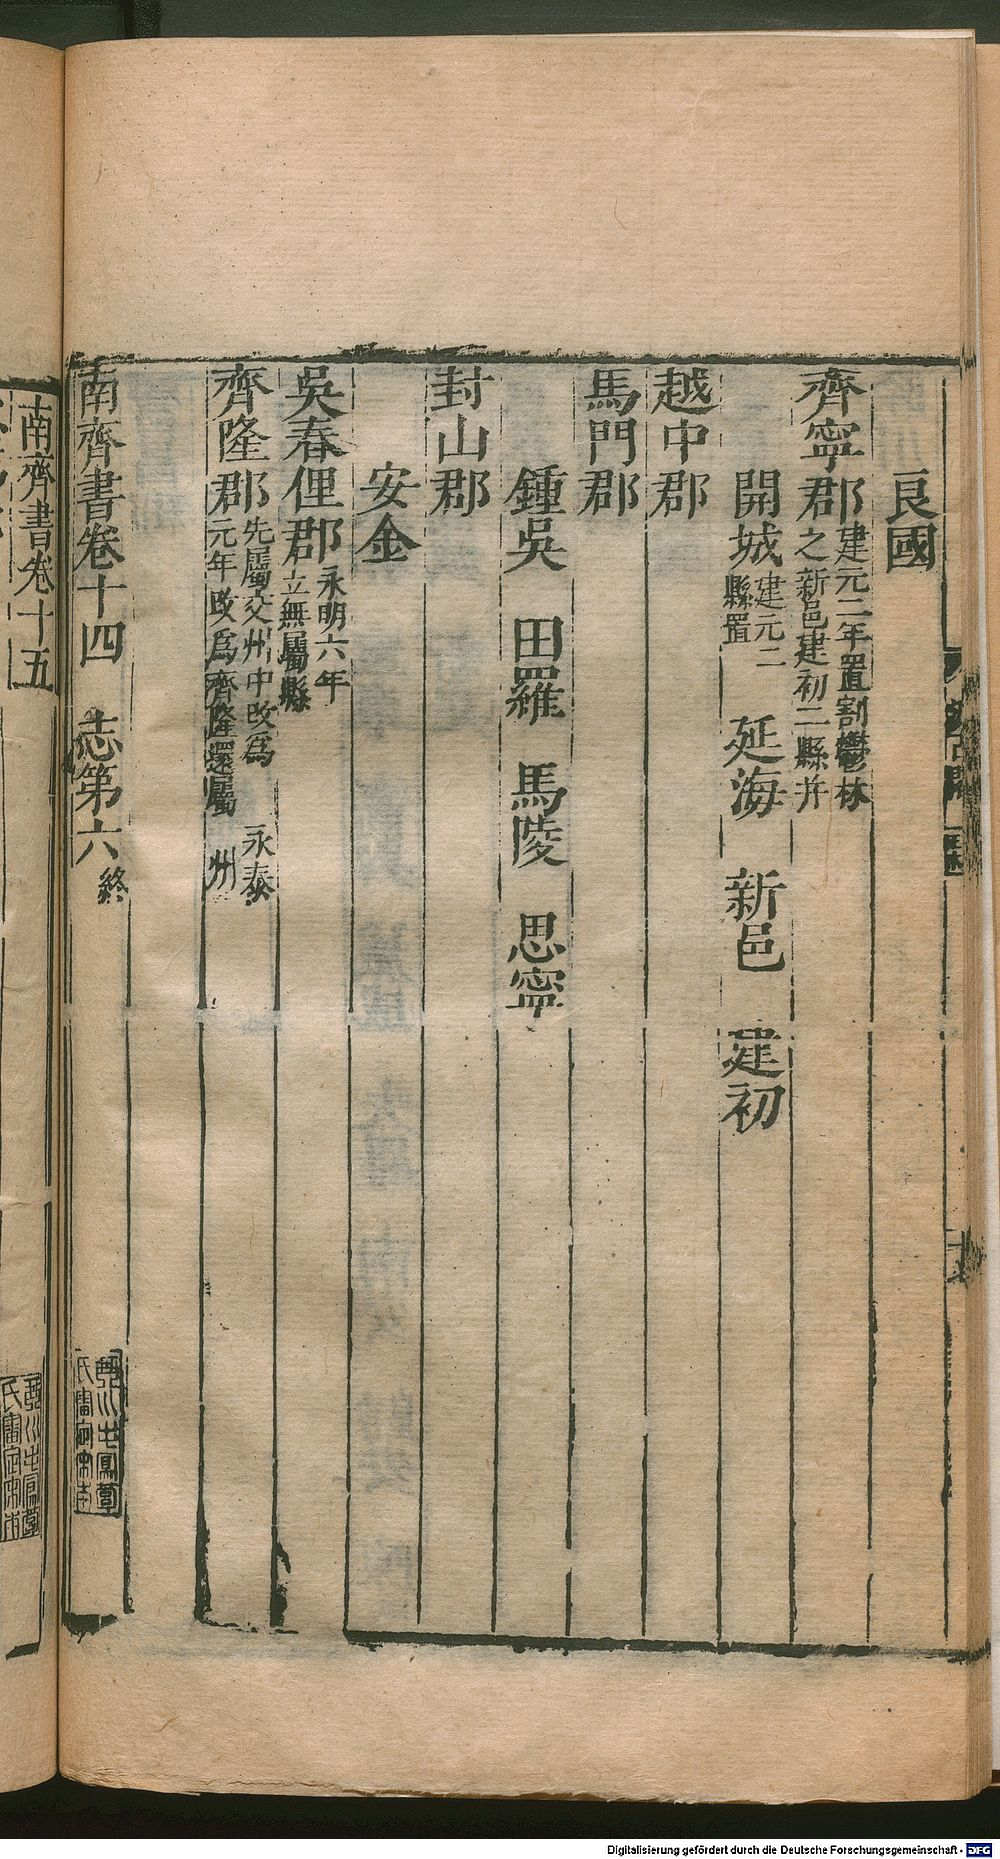 良國
齊寧郡 建元二年置割鬱林
之新邑建初二縣幷
開城 建元二
縣置 延海 新邑 建初
越中郡
馬門郡
鍾吳 田羅 馬陵 思寧
封山郡
安金
吳春俚郡 永明六年
立無屬縣
齊隆郡 先屬交州中改爲 永泰
元年改爲齊隆還屬 州
南齊書卷十四 志第六 終
南齊書卷十五
Digitalisierung gefördert durch die Deutsche Forschungsgemeinschaft - DFG